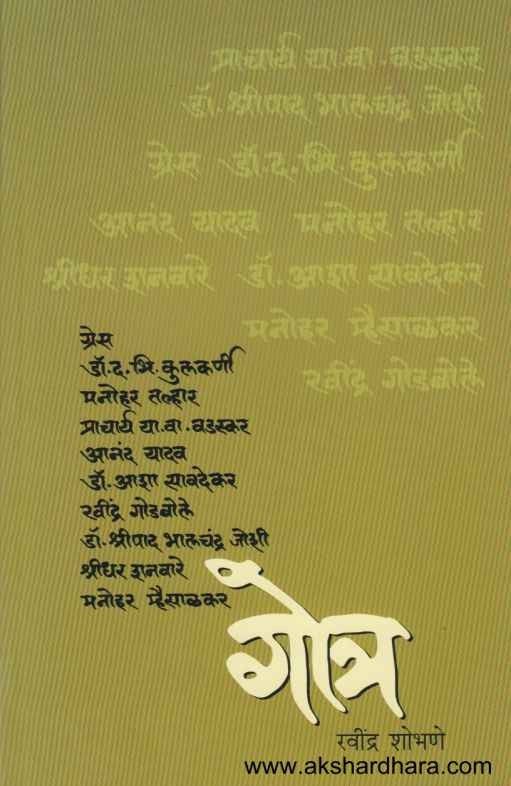 प्राचार्य या.वा.वडस्कर
डॉ.श्रीपाद भालचंद्र जोशी
ग्रेस डॉ.द.भि.कुलकर्णी
आनंद यादव मनोहर तल्हार
श्रीधर शनवारे डॉ.आशा सावदेकर
मनोहर म्हैसाळकर
रवींद्र गोडबोले
ग्रेस
डॉ.द.भि.कुलकर्णी
मनोहर तल्हार
प्राचार्य या.वा.वडस्कर
आनंद यादव
डॉ.आशा सावदेकर
रवींद्र गोडबोले
डॉ.श्रीपाद भालचंद्र जोशी
श्रीधर शनवारे
मनोहर म्हैसाळकर
गोत्र
रवींद्र शोभणे
www.akshardhara.com